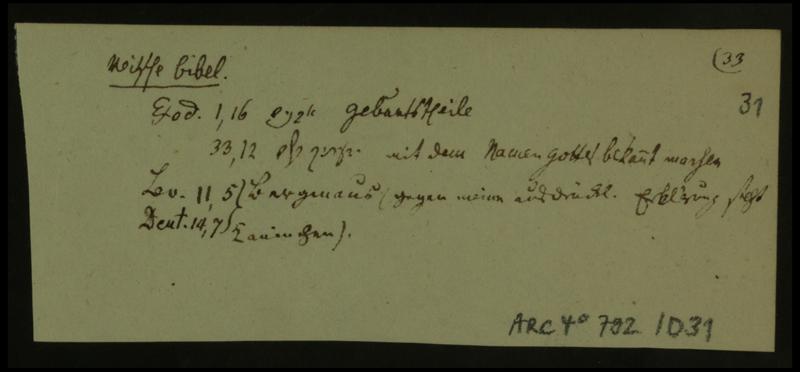 bibel.
(33
Exod. 1,16 Geburtstheile
31
33,12 mit dem Namen Gottes bekannt machen
Lev. 11, 5 { Bergmaus (gegen meine ausdrückl. Erklärung steht
Deut. 14,7 Kaninchen).
ARC 4° 792 / D31